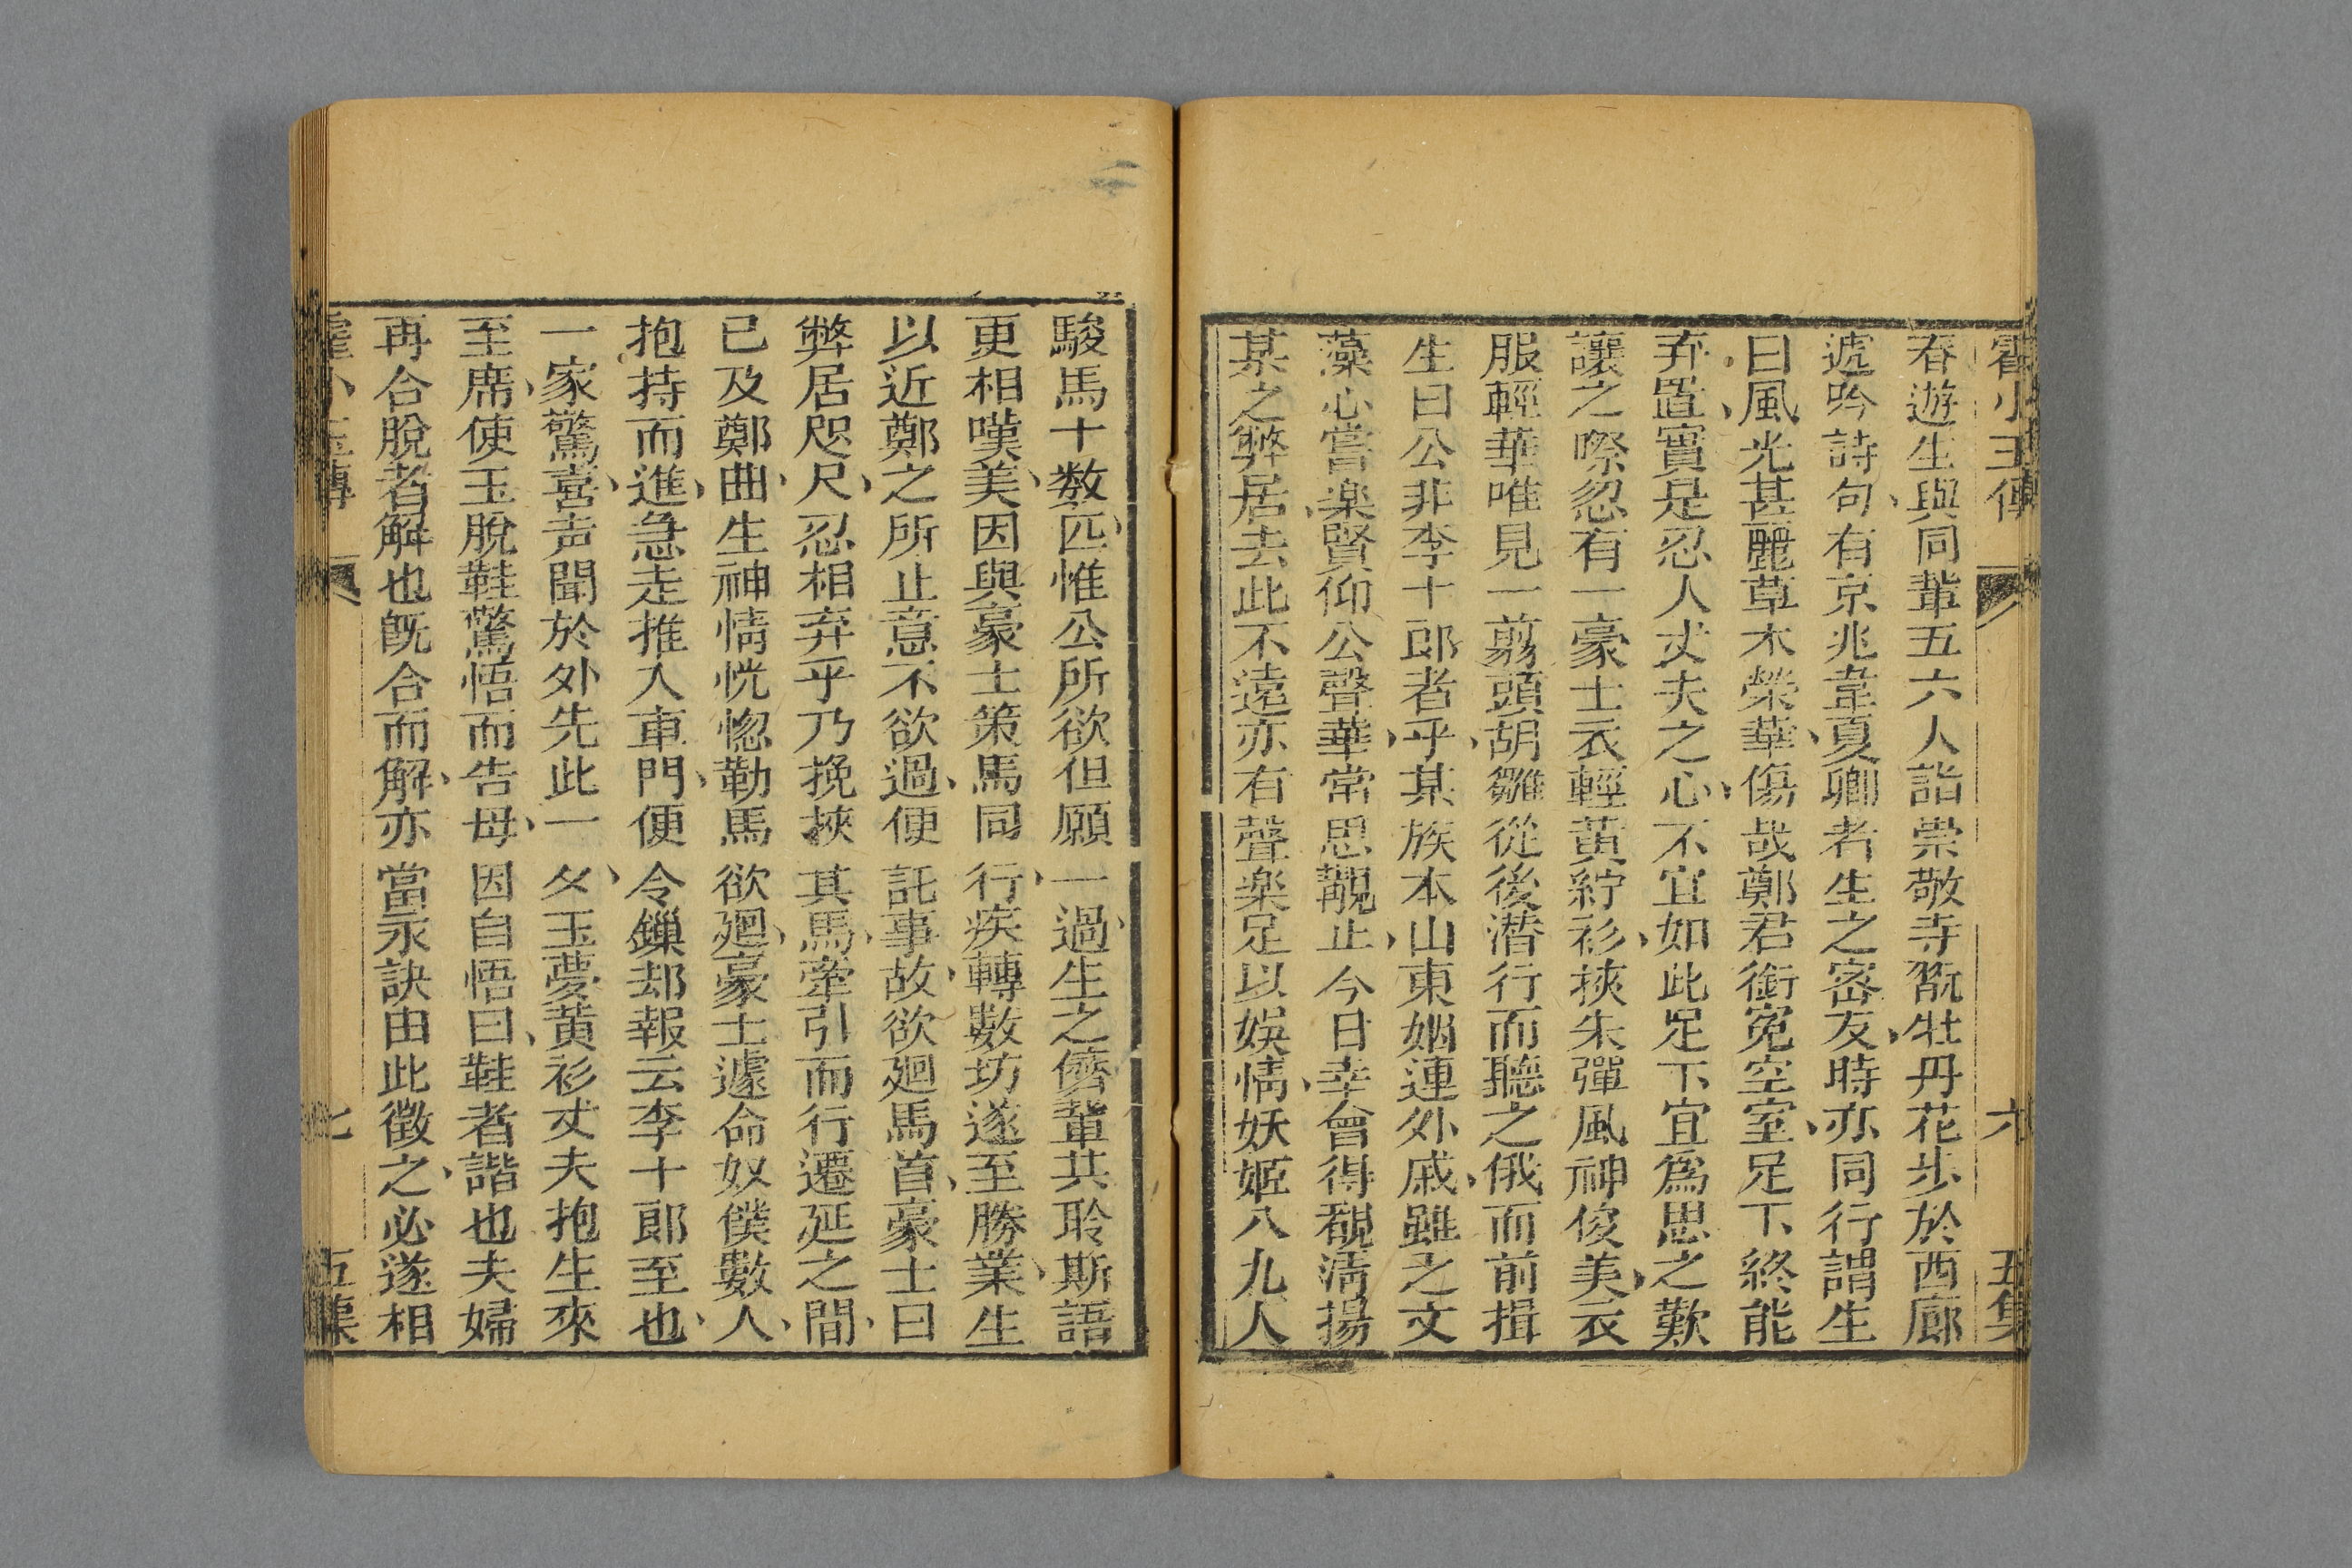 霍小玉傳 六 五集
春遊生與同輩五六人詣崇敬寺翫牡丹花步於西廊
遞吟詩句有京兆韋夏卿者生之密友時亦同行謂生
曰風光甚麗草木榮華傷哉鄭君銜冤空室足下終能
弃置實是忍人丈夫之心不宜如此足下宜爲思之歎
讓之際忽有一豪士衣輕黄紵衫挾朱彈風神俊美衣
服輕華唯見一剪頭胡雛從後潜行而聽之俄而前揖
生曰公非李十郎者乎某族本山東姻連外戚雖乏文
藻心嘗楽賢仰公聲華常思覯止今日幸會得覩清揚
某之弊居去此不遠亦有聲楽足以娯情妖姬八九人
駿馬十数匹惟公所欲但願一過生之儕輩共聆斯語
更相嘆美因與豪士策馬同行疾轉數坊遂至勝業生
以近鄭之所止意不欲過便託事故欲廻馬首豪士曰
弊居咫尺忍相弃乎乃挽挾其馬牽引而行遷延之間
已及鄭曲生神情恍惚勒馬欲廻豪士遽命奴僕數人
抱持而進急走推入車門便令鏁却報云李十郎至也
一家驚喜声聞於外先此一夕玉夢黄衫丈夫抱生來
至席使玉脫鞋驚悟而告母因自悟曰鞋者諧也夫婦
再合脫者解也既合而解亦當永訣由此徵之必遂相
霍小玉傳 七 五集